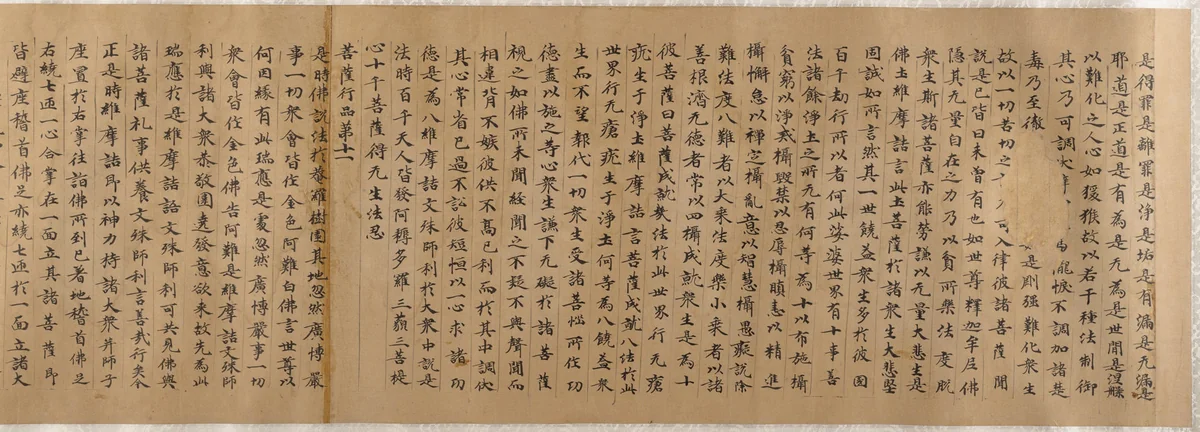 是得罪是離罪是浄是垢是有漏是无漏是
耶道是正道是有為是无為是世間是涅槃
以難化之人心如猨猴故以若干種法制御
其心乃可調伏 𢤱悷不調加諸楚
毒乃至徹 是剛强難化衆生
故以一切苦切之 可入律彼諸菩薩聞
說是已皆曰未曽有也如世尊釋迦牟尼佛
隱其无量自在之力乃以貧所樂法度脫
衆生斯諸菩薩亦能勞謙以无量大悲生是
佛土維摩詰言此土菩薩於諸衆生大悲堅
固誠如所言然其一世饒益衆生多於彼國
百千劫行所以者何此娑婆世界有十事善
法諸餘浄土之所无有何等為十以布施攝
貧窮以浄戒攝毀禁以忍辱攝瞋恚以精進
攝懈怠以禪定攝亂意以智慧攝愚癡說除
難法度八難者以大乗法度樂小乗者以諸
善根濟无德者常以四攝成就衆生是為十
彼菩薩曰菩薩成就幾法於此世界行无瘡
疣生于浄土維摩詰言菩薩成就八法於此
世界行无瘡疣生于浄土何等為八饒益衆
生而不望報代一切衆生受諸苦惱所作功
德盡以施之等心衆生謙下无礙於諸菩薩
視之如佛所未聞經聞之不疑不與聲聞而
相違背不嫉彼供不高己利而於其中調伏
其心常省己過不訟彼短恒以一心求諸功
德是為八維摩詰文殊師利於大衆中說是
法時百千天人皆發阿耨多羅三藐三菩提
心十千菩薩得无生法忍
菩薩行品第十一
是時佛說法於菴羅樹園其地忽然廣博嚴
事一切衆會皆作金色阿難白佛言世尊以
何因緣有此瑞應是處忽然廣博嚴事一切
衆會皆作金色佛告阿難是維摩詰文殊師
利與諸大衆恭敬圍遶發意欲来故先為此
瑞應於是維摩詰語文殊師利可共見佛與
諸菩薩礼事供養文殊師利言善哉行矣今
正是時維摩詰即以神力持諸大衆并師子
座置於右掌往詣佛所到已著地稽首佛足
右繞七迊一心合掌在一面立其諸菩薩即
皆避座稽首佛足亦繞七迊於一面立諸大